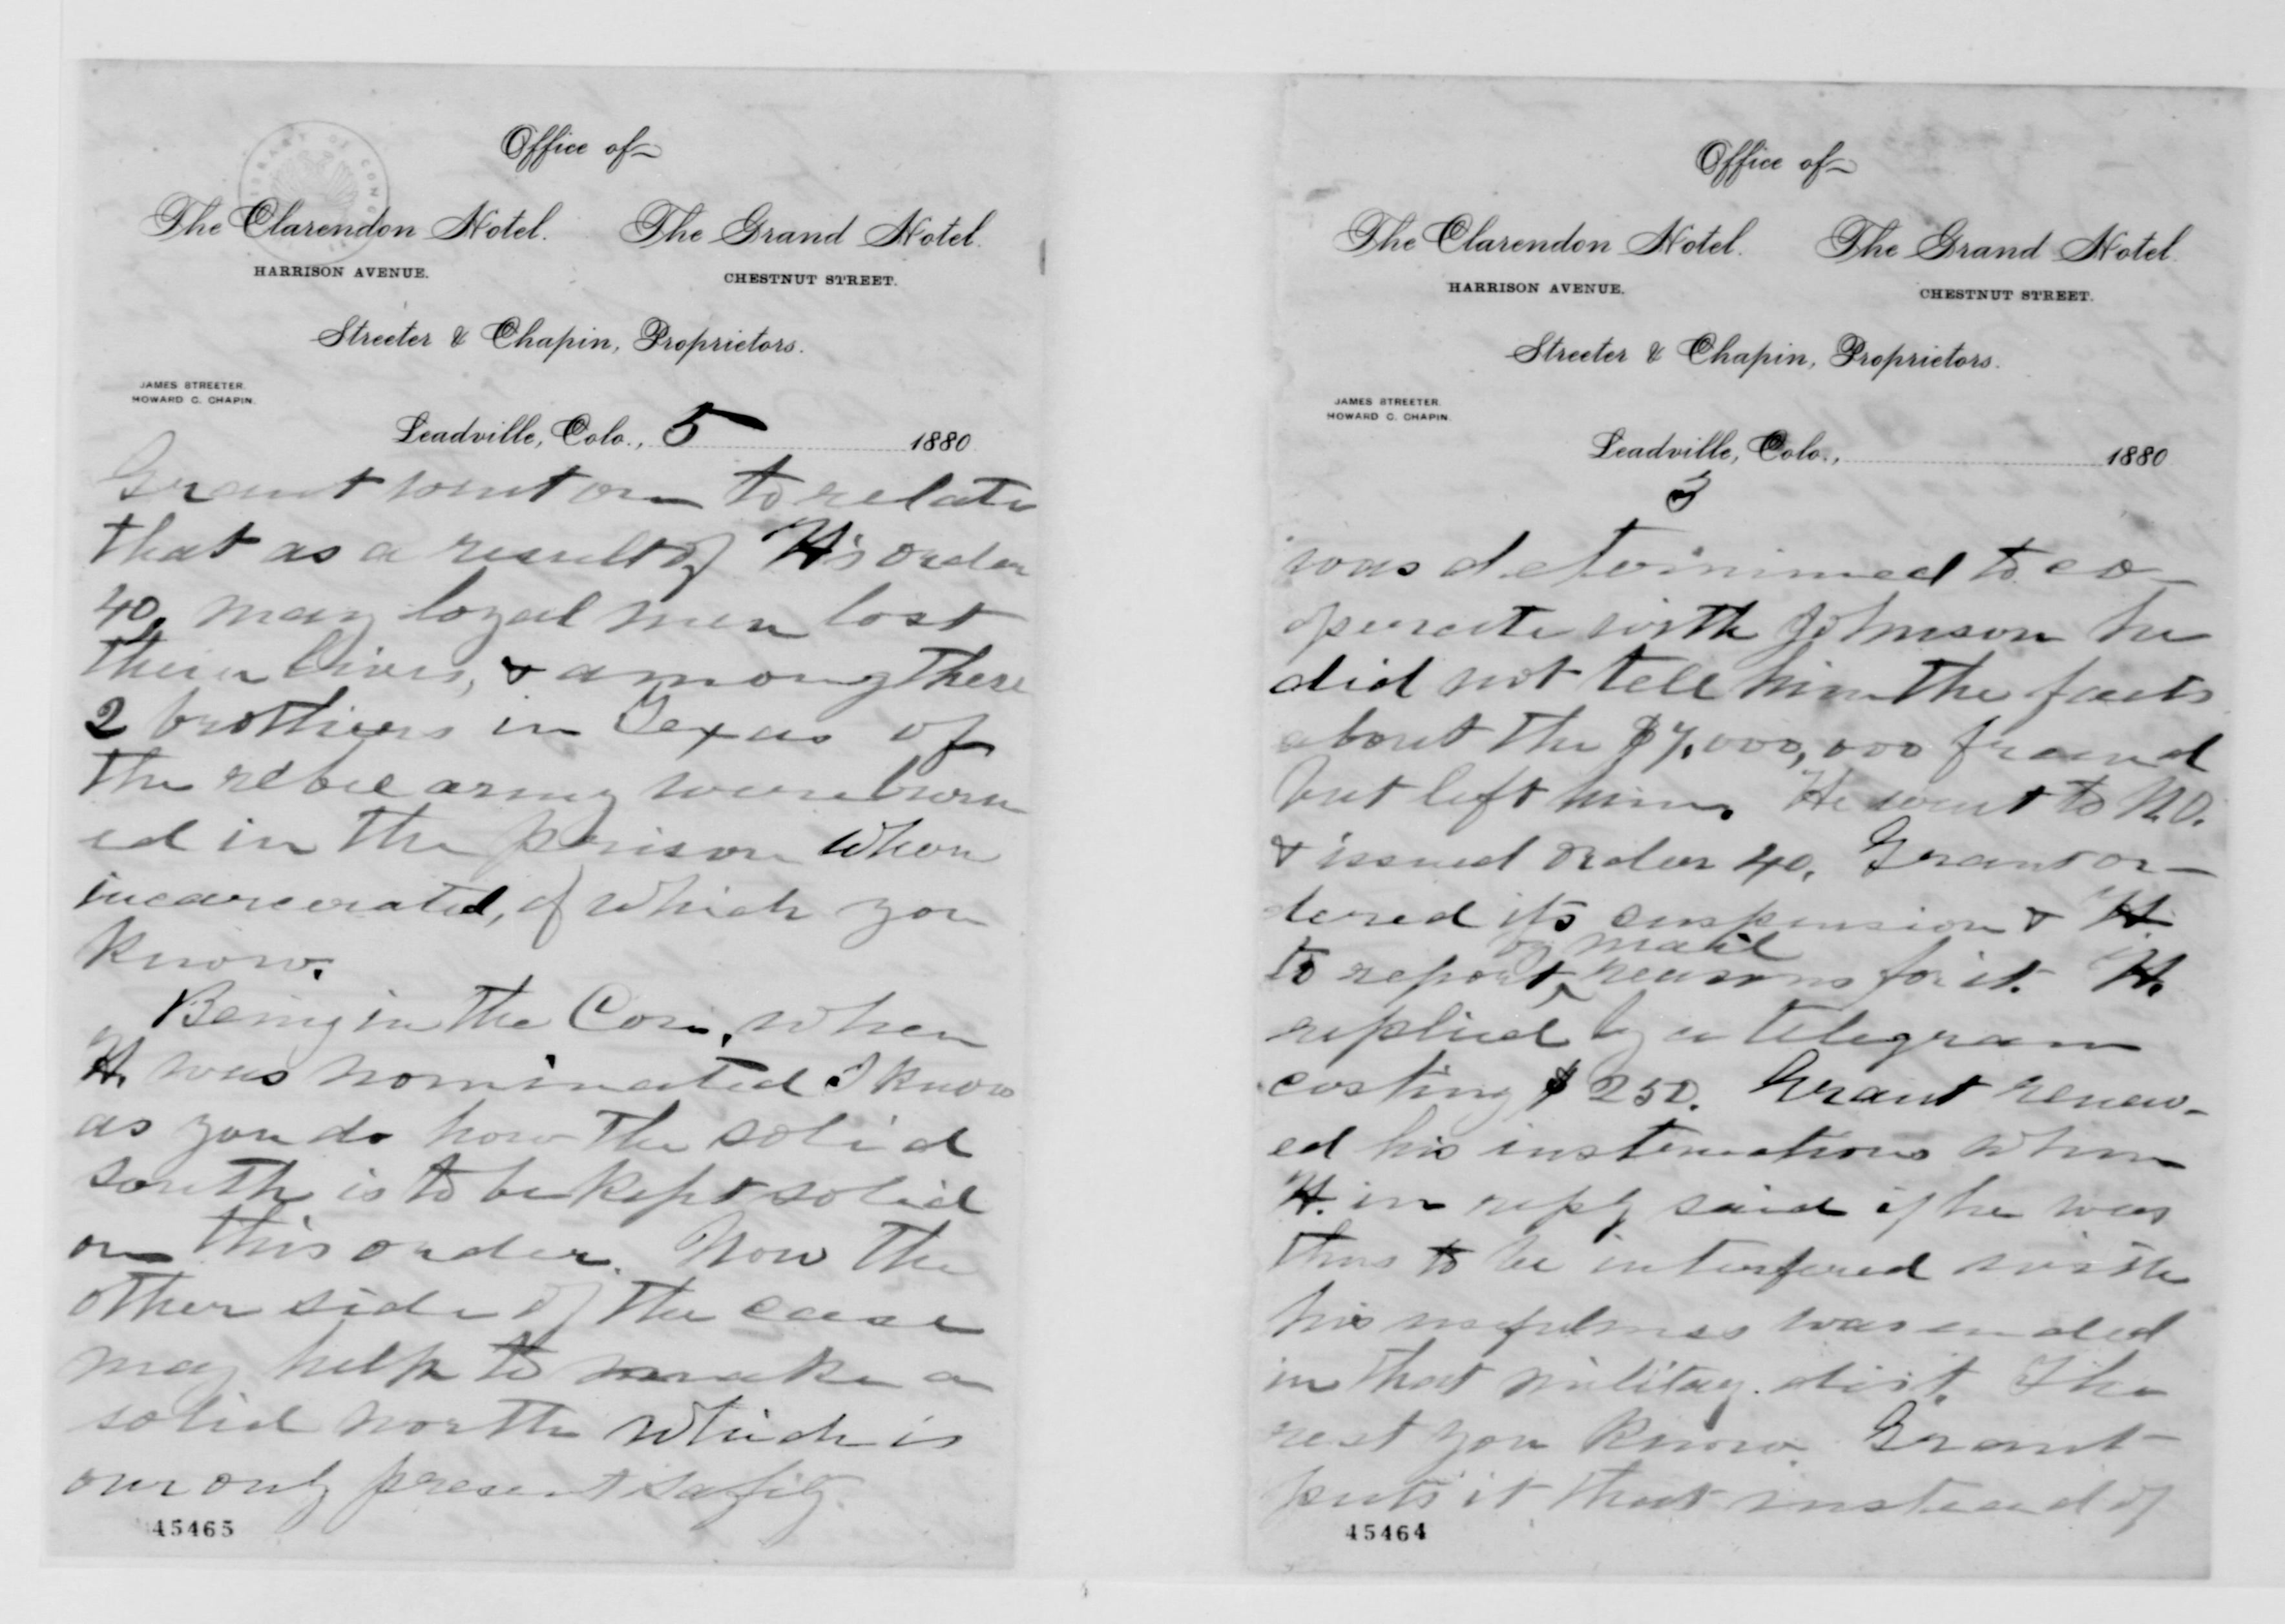 LIBRARY OF CONG
Office of
The Clarendon Hotel. The Grand Hotel.
HARRISON AVENUE. CHESTNUT STREET.
Streeter & Chapin, Proprietors.
JAMES STREETER.
HOWARD C. CHAPIN.
Leadville, Colo., 5 1880
Grant went on to relate
that as a result of H's order
40, many loyal men lost
their lives, & among these
2 brothers in Texas of
the rebel army were burn
ed in the prison when
incarcerated, of which you
know.
Being in the Con. when
H. was nominated I know
as you do how the solid
south is to be kept solid
on this order. Now the
other side of the case
may help to make a
solid north which is
our only present safety.
45465
Office of
The Clarendon Hotel. The Grand Hotel.
HARRISON AVENUE. CHESTNUT STREET.
Streeter & Chapin, Proprietors.
JAMES STREETER.
HOWARD C. CHAPIN.
Leadville, Colo., 1880
3
was determined to co-
operate with Johnson he
did not tell him the facts
about the $7,000,000 fraud
but left him. He went to N.O.
& issued order 40. Grant or-
dered its suspension & H.
by mail
to report reasons for it. H.
replied by a telegram
costing $250. Grant renew-
ed his instructions when
H. in reply said if he was
thus to be interfered with
his usefulness was ended
in that military dist. The
rest you know. Grant
puts it that instead of
45464